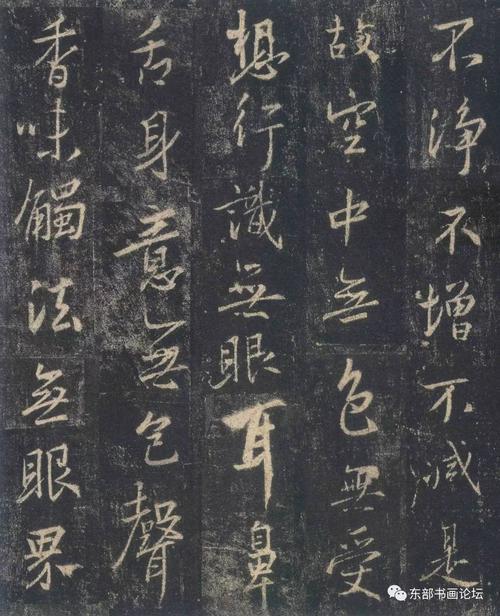 不淨不增不減是
故空中無色無受
想行識無眼耳鼻
舌身意無色聲
香味觸法無眼界
东部书画论坛